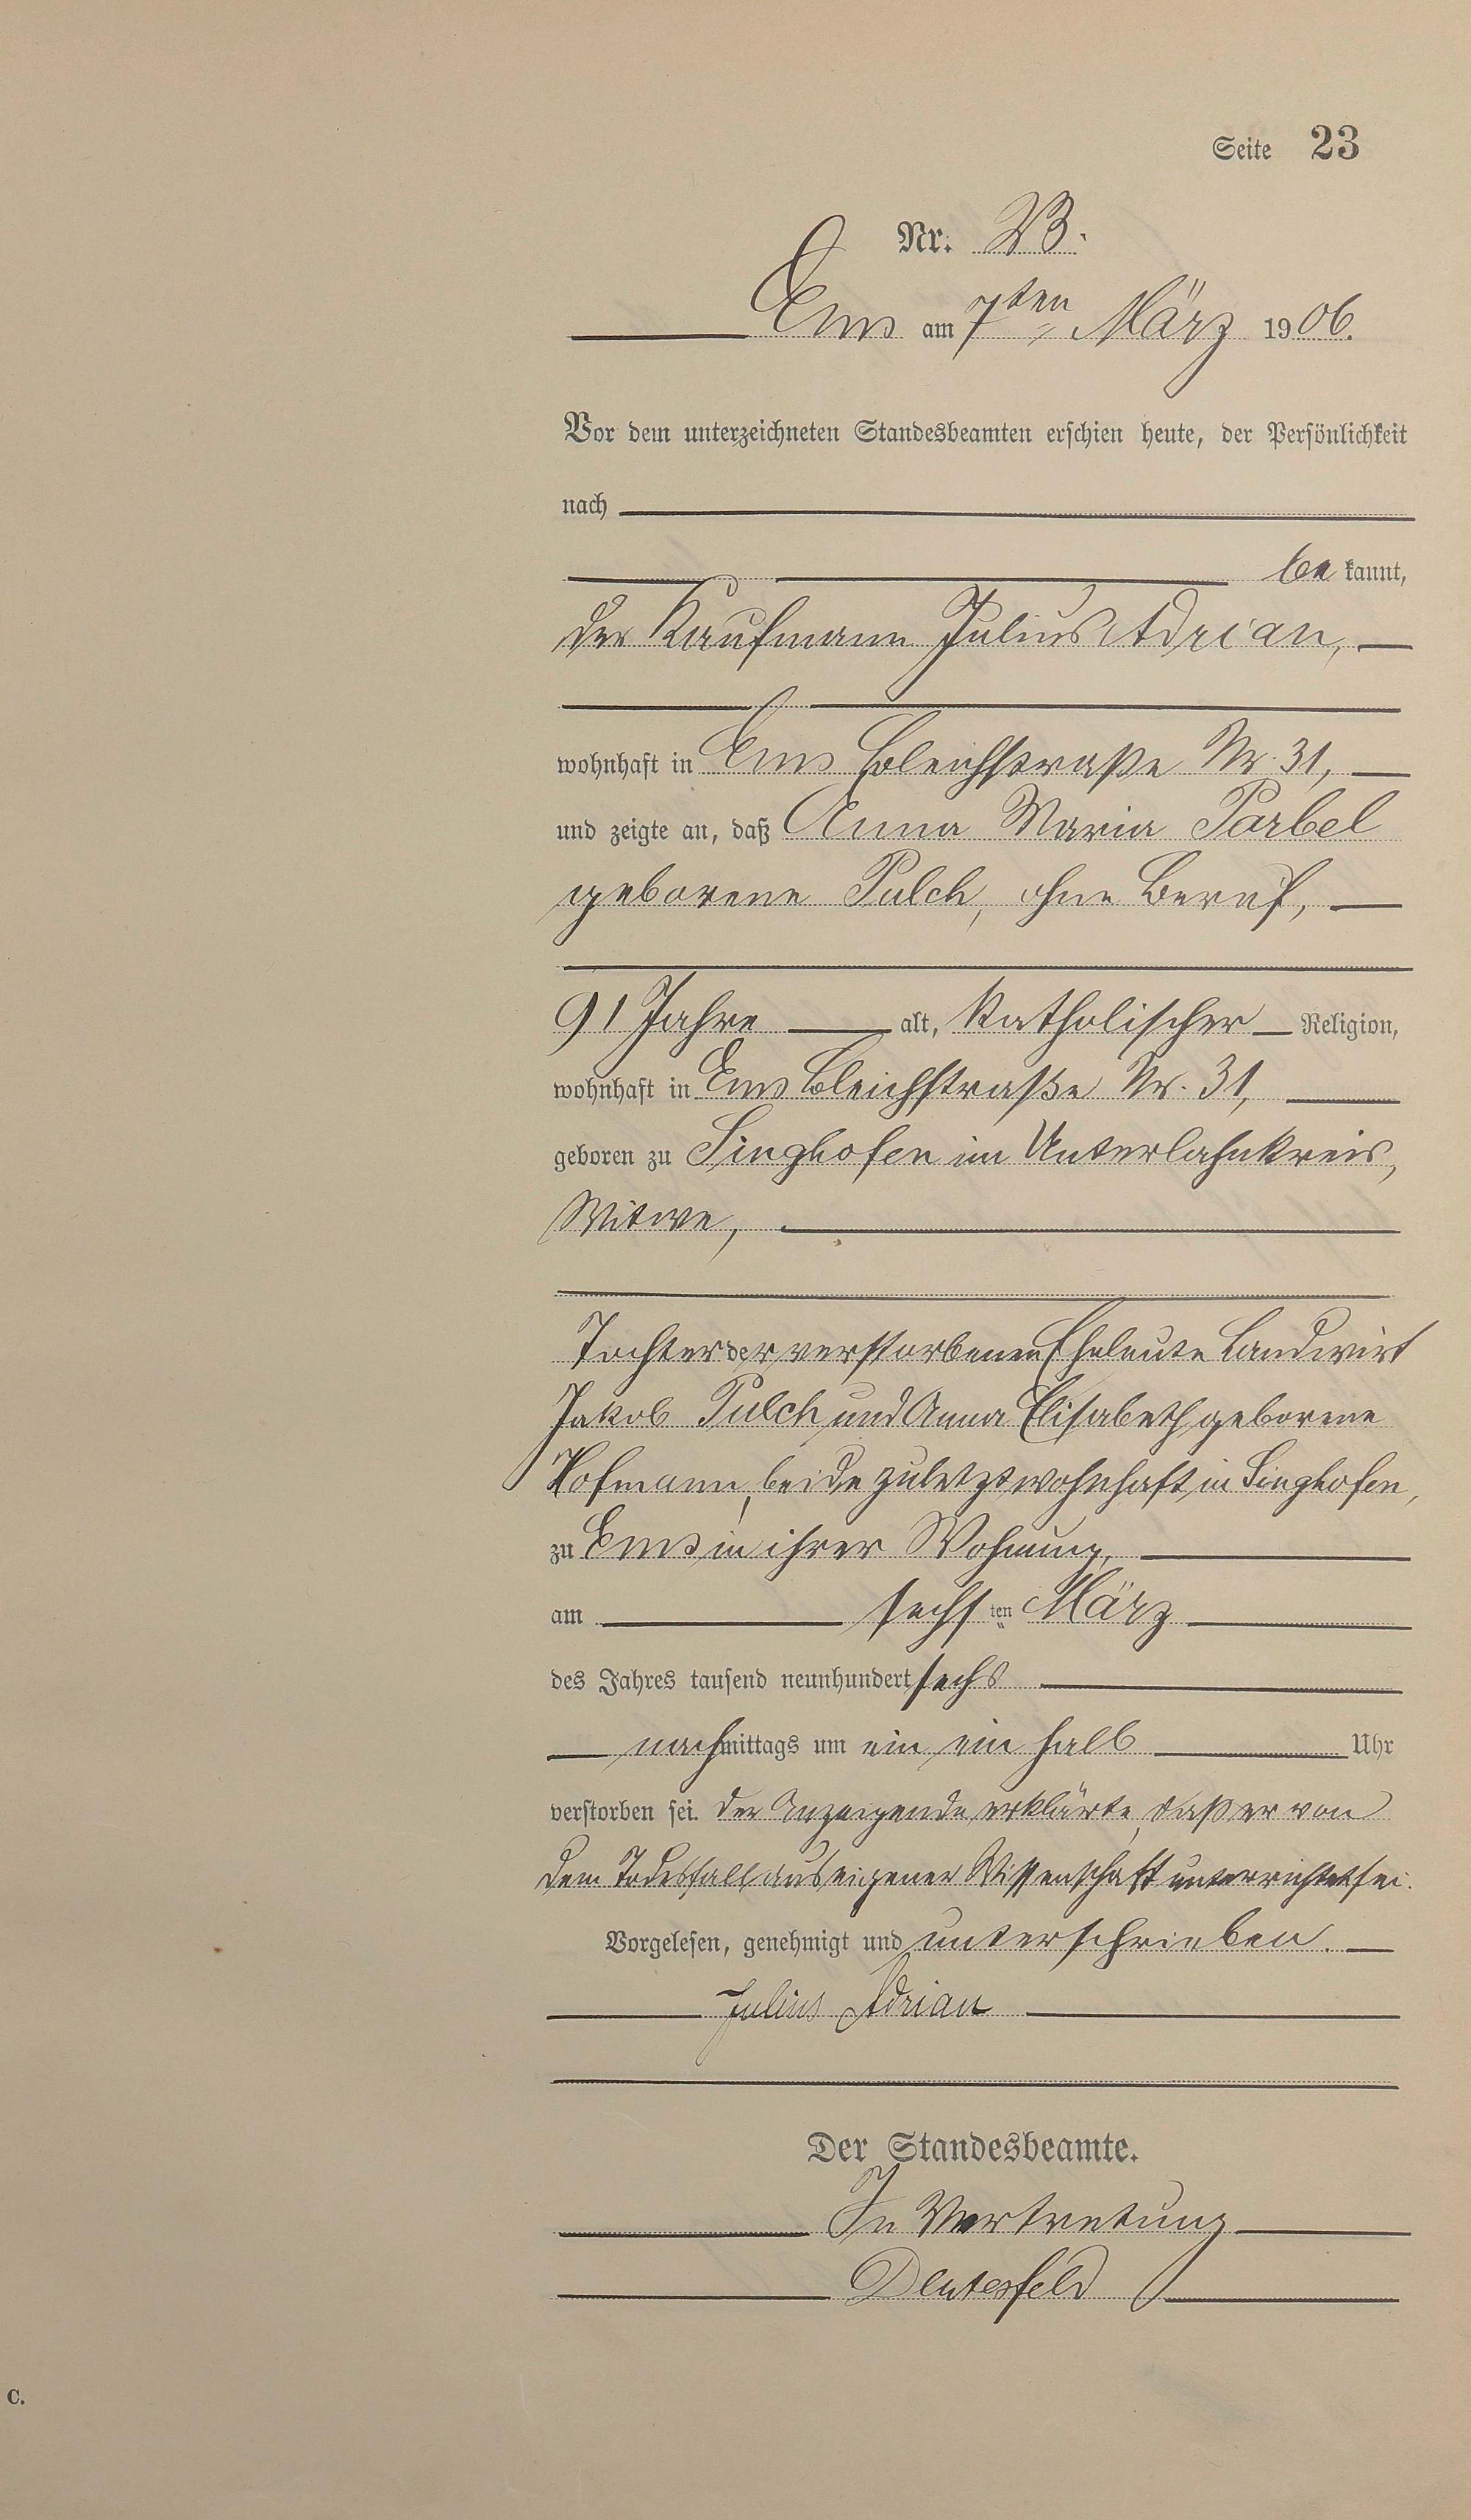 Seite 23
Nr. 23.
Ems am 7ten März 1906.
Vor dem unterzeichneten Standesbeamten erschien heute, der Persönlichkeit
nach
be kannt,
der Kaufmann Julius Adrian,
wohnhaft in Ems Bleichstraße Nr. 31,
und zeigte an, daß Anna Maria Parbel
geborene Pulch, ohne Beruf,
91 Jahre alt, katholischer Religion,
wohnhaft in Ems Bleichstraße Nr. 31,
geboren zu Singhofen im Unterlahnkreis,
Witwe,
Tochter der verstorbenen Eheleute Landwirt
Jakob Pulch und Anna Elisabeth geborene
Hofmann, beide zuletzt wohnhaft in Singhofen,
zu Ems in ihrer Wohnung,
am sechsten März
des Jahres tausend neunhundert sechs
nachmittags um ein ein halb Uhr
verstorben sei. Der Anzeigende erklärte, daß er von
dem Todesfall aus eigener Wissenschaft unterrichtet sei.
Vorgelesen, genehmigt und unterschrieben.
Julius Adrian
Der Standesbeamte.
In Vertretung
C.